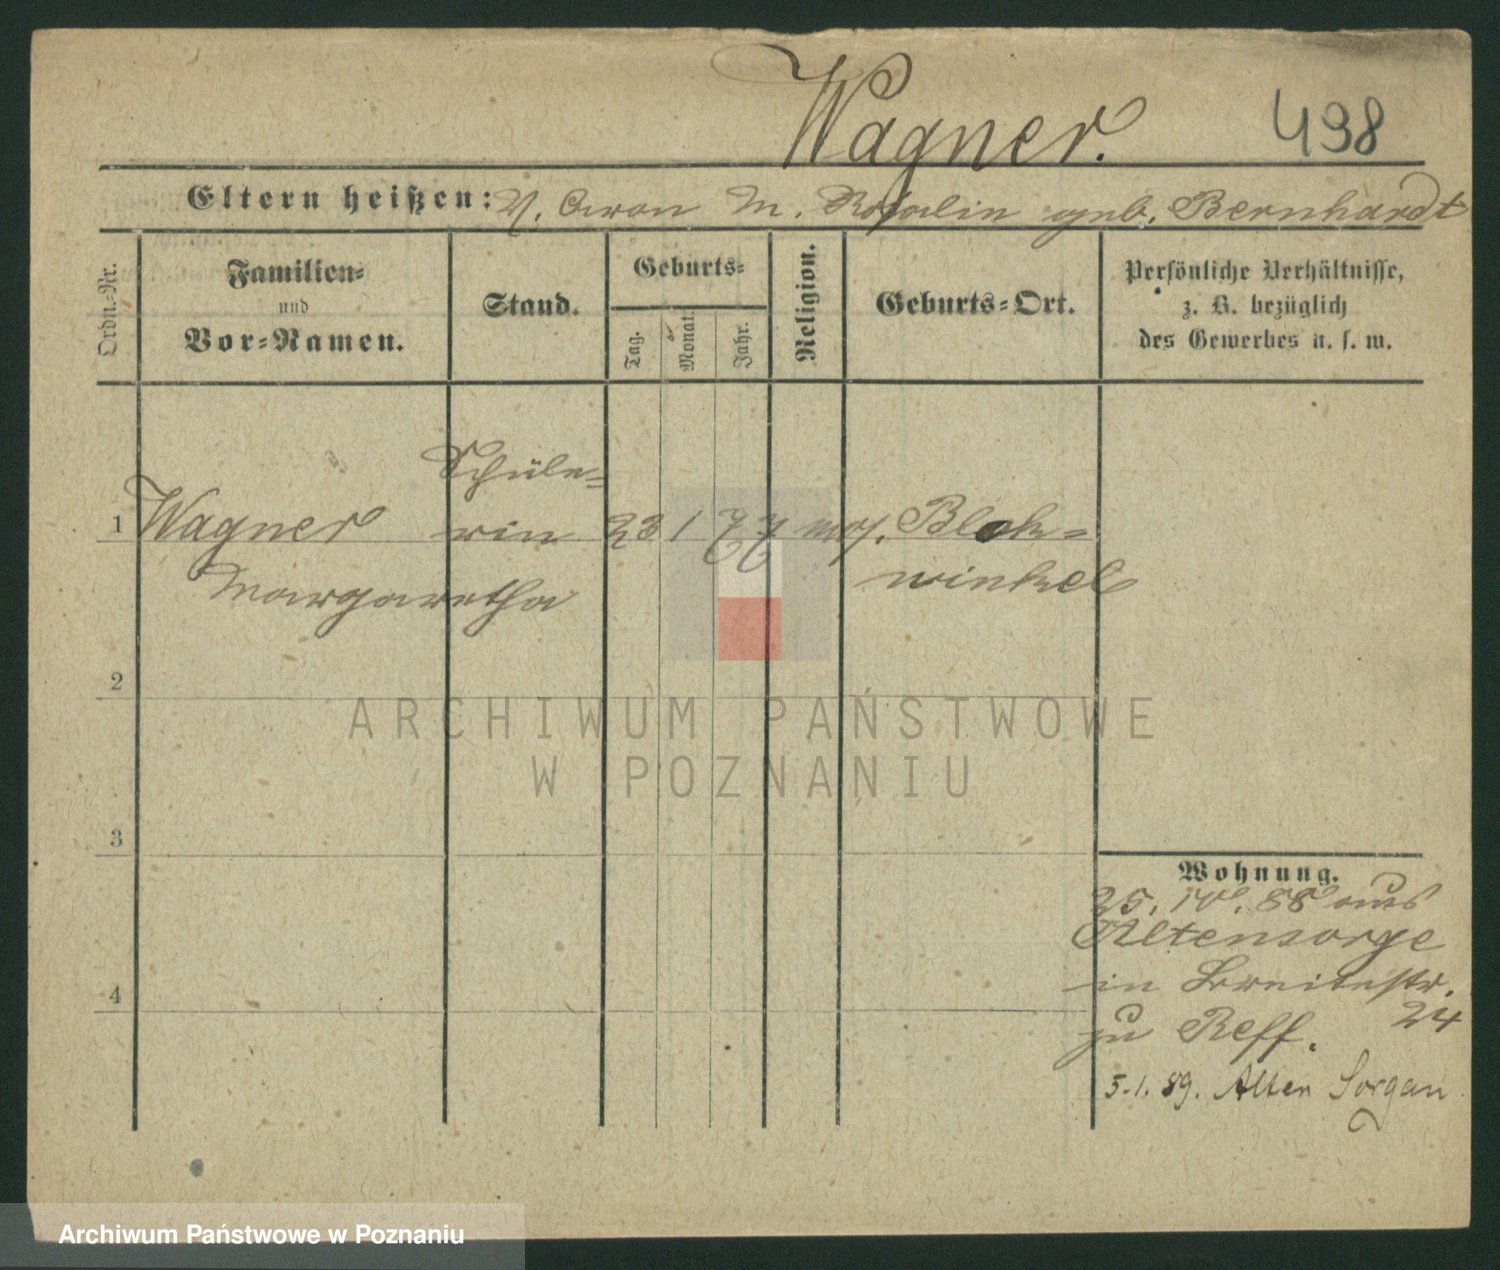 Wagner. 498
Eltern heißen: V. Aron M. Rosalin geb. Bernhardt
Ordn.-Nr.
Familien-
und
Vor-Namen.
Stand.
Geburts-
Tag.
Monat.
Jahr.
Religion.
Geburts-Ort.
Persönliche Verhältnisse,
z. B. bezüglich
des Gewerbes u. s. w.
Schüle-
1 Wagner rin 23 1 77 Blok-
Margaretha winkel
2
3
4
Wohnung.
25. 10. 88 aus
Altensorge
in Breitestr.
24
zu Reff.
5.1.89. Alten Sorgan
ARCHIWUM PAŃSTWOWE
W POZNANIU
Archiwum Państwowe w Poznaniu